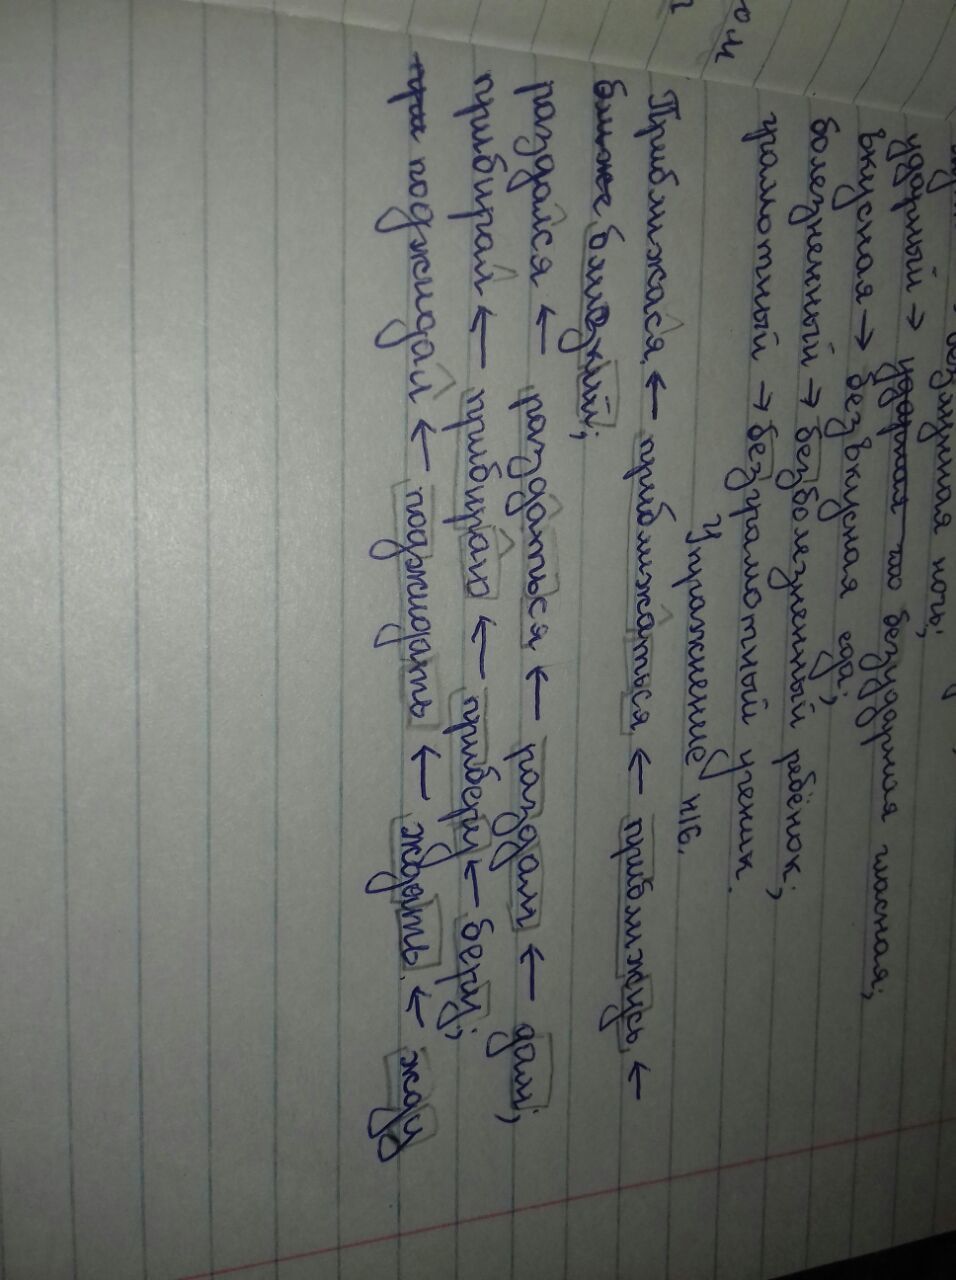 ударный → ударная безударная гласная;
вкусная → безвкусная еда;
болезненный → безболезненный ребёнок;
грамотный → безграмотный ученик.
Упражнение н16.
Приближася ← приближаться ← приближусь ←
ближе близкий;
раздался ← раздаться ← раздам ← дам;
прибирал ← прибираю ← приберу ← беру;
при поджидал ← поджидать ← ждать. ← жду